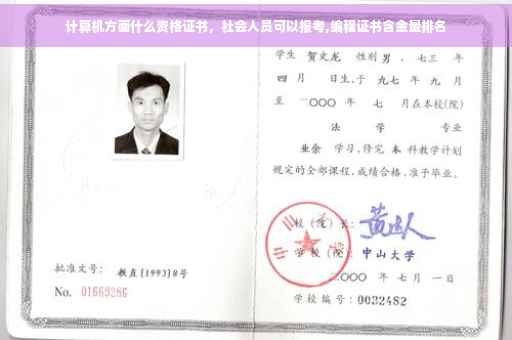 计算机方面什么资格证书，社会人员可以报考,编程证书含金量排名
学生 贺文龙 性别 男，七三 年
四 月 日生，于 九七 年 九 月
至 二〇〇〇 年 七 月在本校(院)
法 学 专业
业余 学习，修完 本 科教学计划
规定的全部课程，成绩合格，准予毕业。
校（院）长：
学校（院）：中山大学
二〇〇〇 年 七 月 一 日
批准文号：教直[1993]8号
No. 01669286
学校编号：0032482